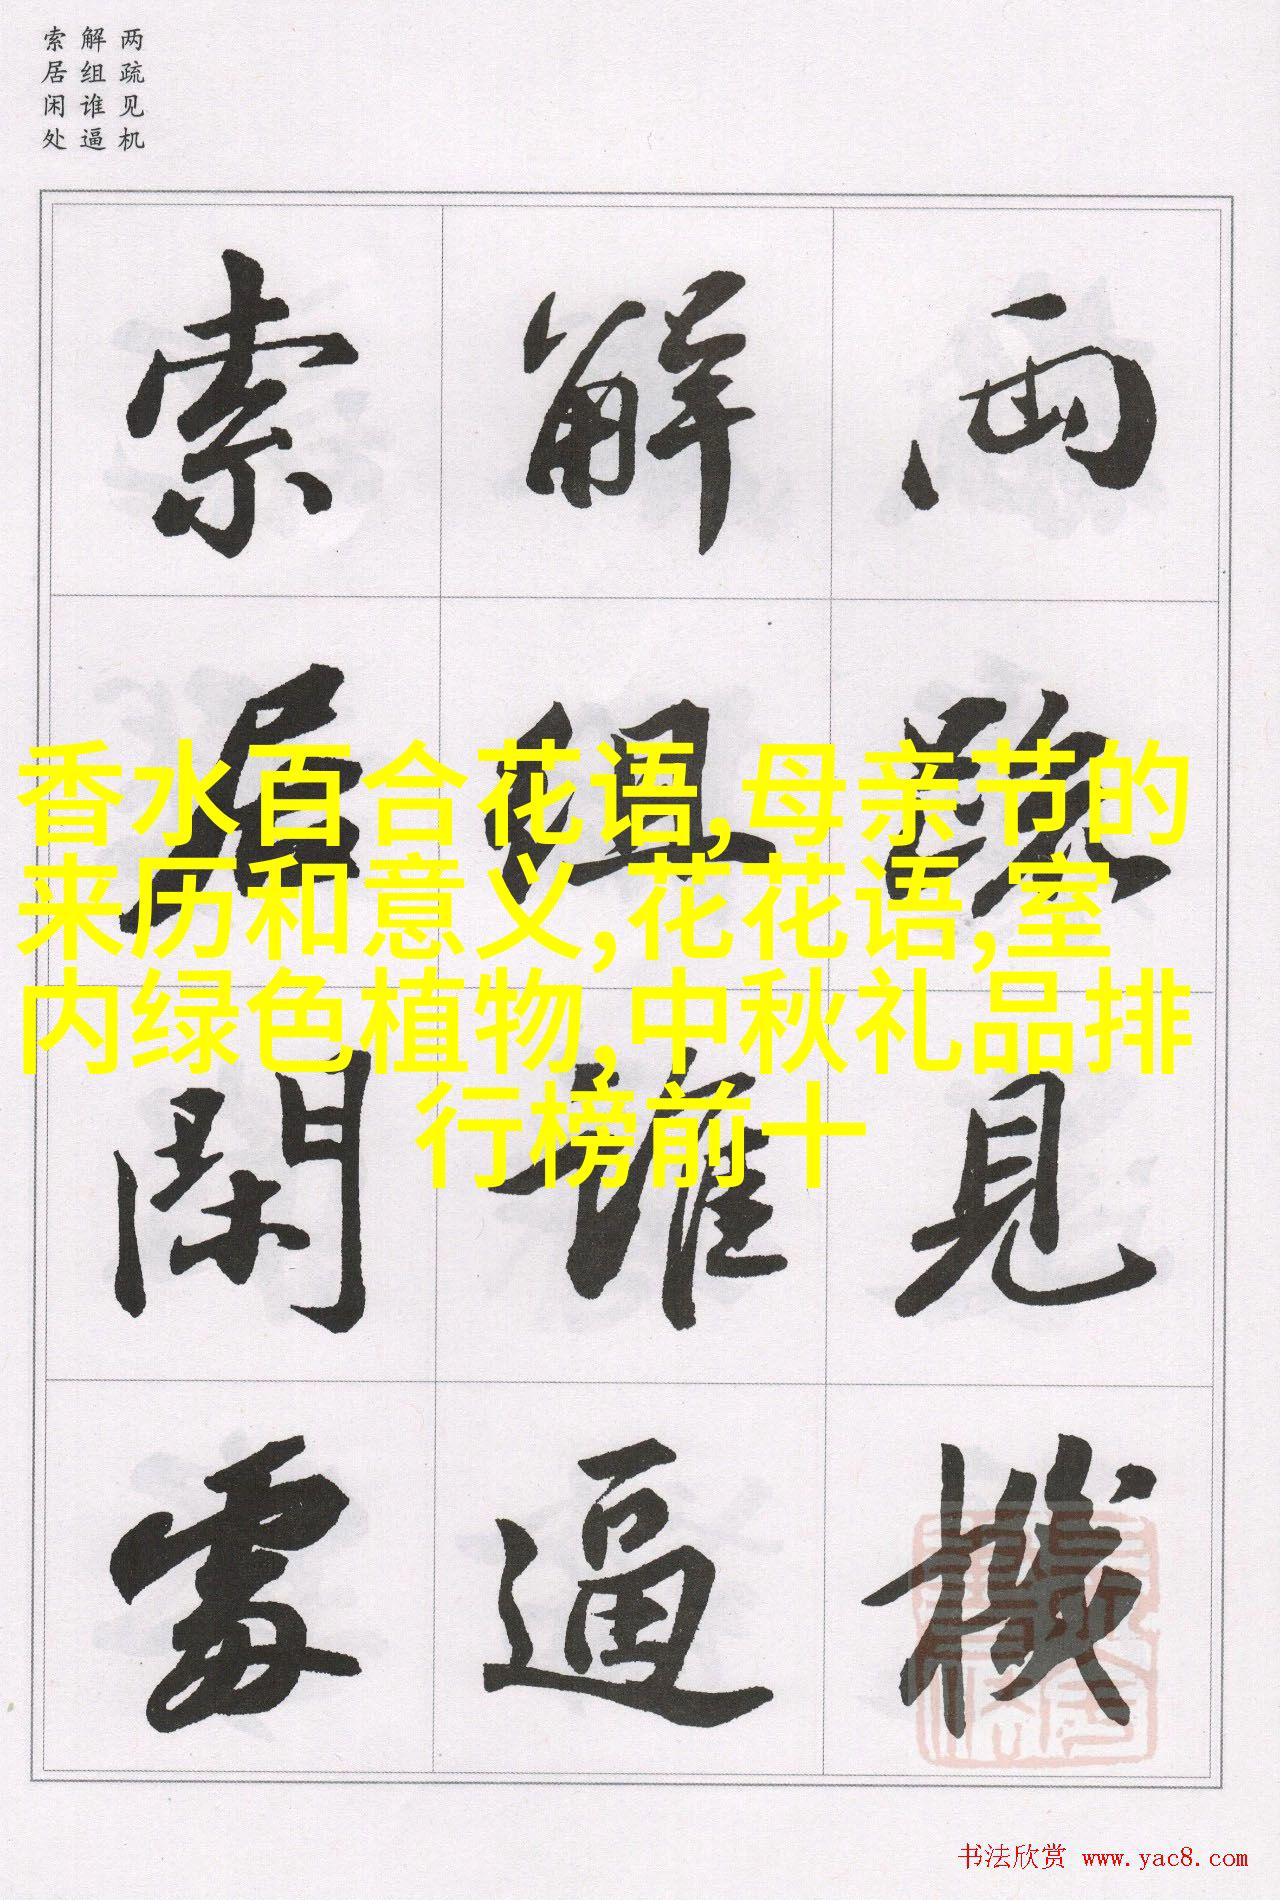 两疏见机
解组谁逼
索居闲处
兩疏見機
解組誰逼
索居閑處
香水百合花语,母亲节的
来历和意义,花花语,室
内绿色植物,中秋礼品排
行榜前十
书法欣赏 www.yac8.com